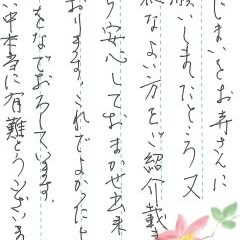 じまいをお寺さんに
願いしましたところ又
切なよい方をご紹介戴き
り安心しておまかせ出来
おります。これでよかったと
をなでおろしています。
い中本当に有難とうございま